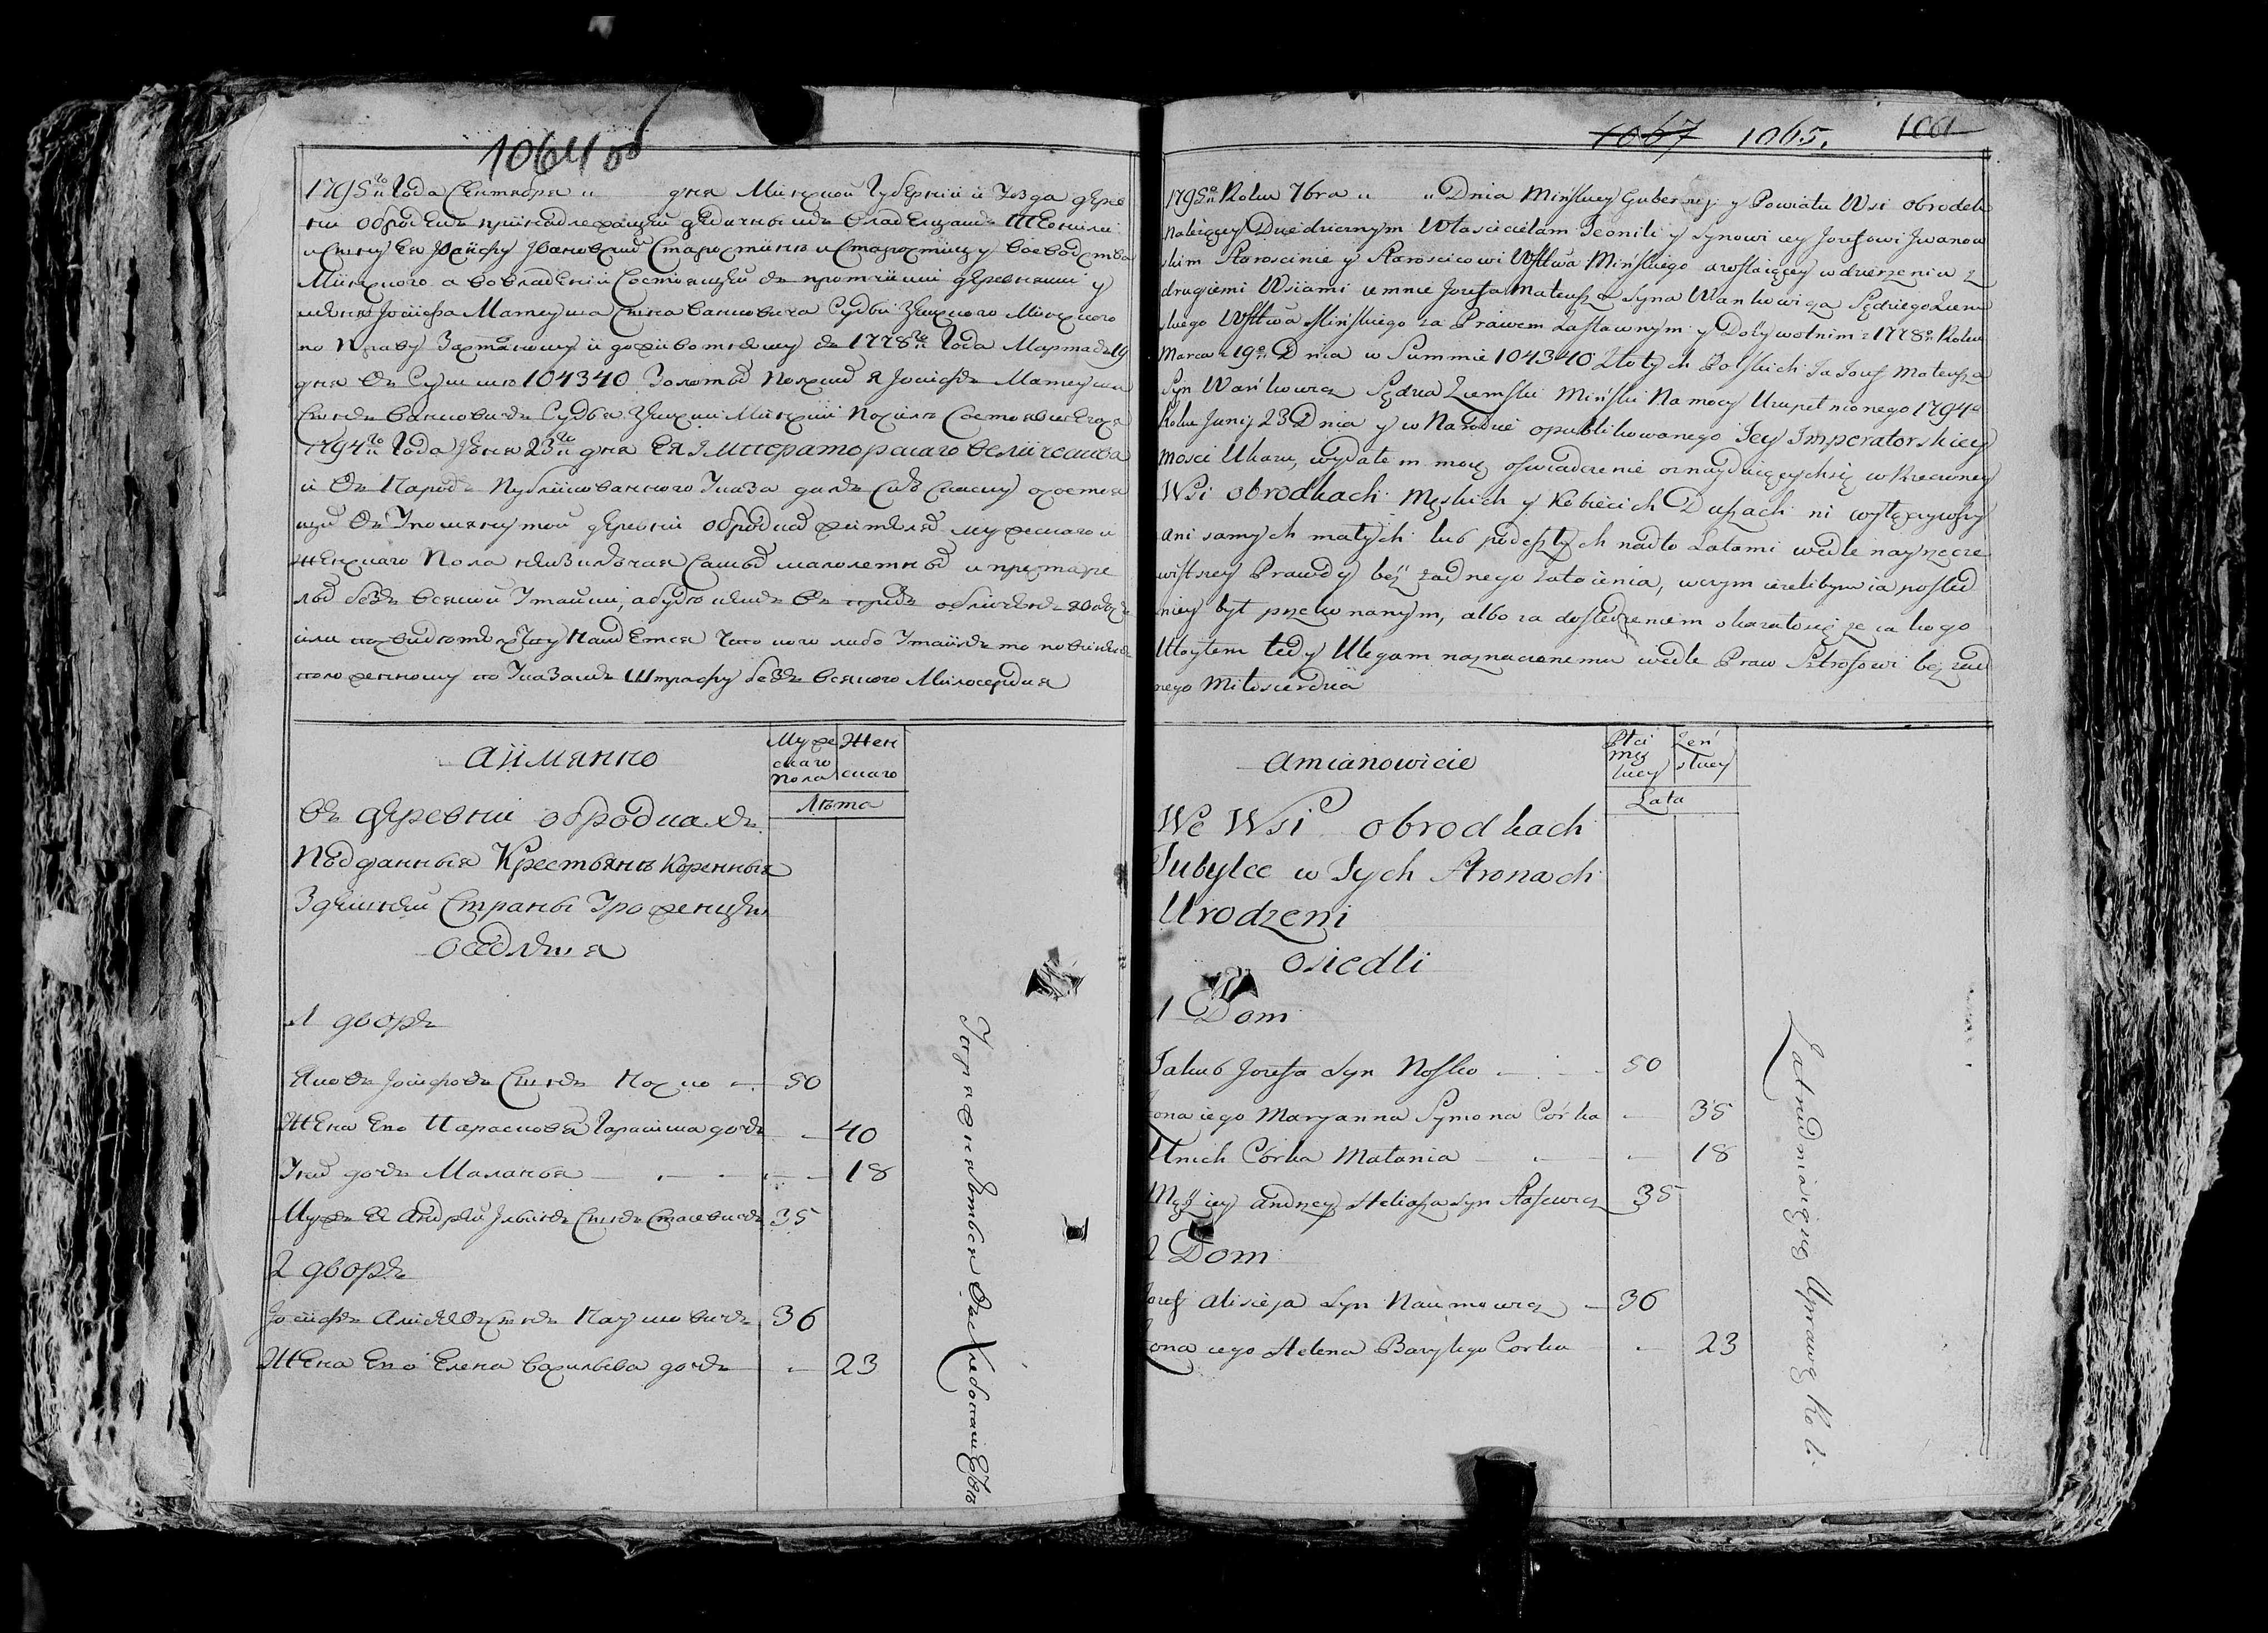 1064 об
1795го Года Сентября " дня Минской Губернии и Уезда дерев
ни Обродек принадлежащей дедичным владельцам Теонили
и сыну ея Иосифу Ивановским Старостине и Старостицу воеводства
Минского а во владении состоящей с протчими деревнями у
меня Иосифа Матеуша сына Ваньковича Судьи Земского Минского
по праву заставному и доживотнему с 1778го Года Марта 19
дня в сумме 104340 золотых польских Я Иосиф Матеуша
сын Ванькович Судья Земский Минский по силе состоявшегося
1794го Года Июня 23го дня Ея Императорскаго величества
и в народ публикованного Указа дал сию сказку о состоя
щих в упомянутой деревни Обродках жителях мужескаго и
женскаго пола не выключая самых малолетных и престаре
лых без всякой утайки, а буду
или найдется что кого либо утаил то повинен
положенному по Указам штрафу без всякого милосердия
а имянно
Муже
скаго
пола
Жен
скаго
Лета
в деревни Обродках
Подданныя Крестьяне коренныя
Здешней Страны Уроженцы
оседлыя
1 двор
Яков Иосифов сын Носко — 50
Жена его Парасковья Гарасима дочь — 40
Их дочь Маланья — 18
Муж ея Андрей Ильин сын Стасевич 35
2 двор
Иосиф сын Наумович 36
Жена его Елена Васильева дочь — 23
Упражняются в Хлебопашестве
1067 1065. 100
1795o Roku 7bra " " Dnia Mińskiey Gubernij y Powiatu Wsi obrodek
należącey Dziedzicznym Włascicielam Teonili y Synowi iey Jozefowi Iwanow
skim Staroscinie y Staroscicowi Wsttwa Mińskiego a zostaiącey w dzierżeniu z
drugiemi Wsiami u mnie Jozefa Mateusza Syna Wankowicza Sędziego Ziem
skiego Wsttwa Mińskiego za Prawem Zastawnym y Dożywotnim z 1778o Roku
Marca 19o Dnia w Summie 104340 Złotych Polskich Ja Jozef Mateusza
Syn Wańkowicz Sędzia Ziemski Miński Na mocy Uzupełnionego 1794o
Roku Junij 23 Dnia y w Narodzie opublikowanego Jey Imperatorskiey
Mosci Ukazu, wydałem moię oswiadczenie o znayduiących się w Rzeczoney
Wsi obrodkach Męskich y Kobiecich Duszach ni wyłączywszy
ani samych małych lub podeszłych nadto Latami wedle nayrzecze
wistszey Prawdy beż żadnego zataienia, w czym ieżelibym ia posled
niey był przekonanym, albo za dosledzeniem okazałosię że ia kogo
Utaytem tedy Ulegam naznaczonemu wedle Praw Sztrofowi beż żad
nego Miłosierdzia
a mianowicie
Płci
męs
kiey
Żeń
skiey
Lata
We Wsi obrodkach
Tubylce w Tych Stronach
Urodzeni
osiedli
1 Dom
Jakub Jozefa Syn Nosko — 50
Żona iego Maryanna Symona Córka — 35
Unich Córka Małania — 18
Mąż iey Andrzey Heliasza Syn Stasewicz 35
2 Dom
Jozef Alisieja Syn Naumowicz — 36
Żona iego Helena Bazylego Corka — 23
Zatrudniaią się Uprawą Roli